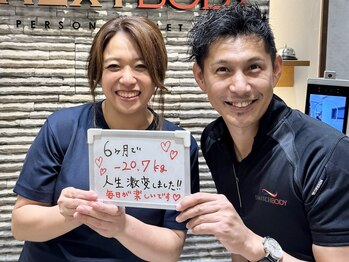 PERSONAL
6ヶ月で
-20.7kg
人生激変しました!!
毎日が楽しいです
SWITCHBODY